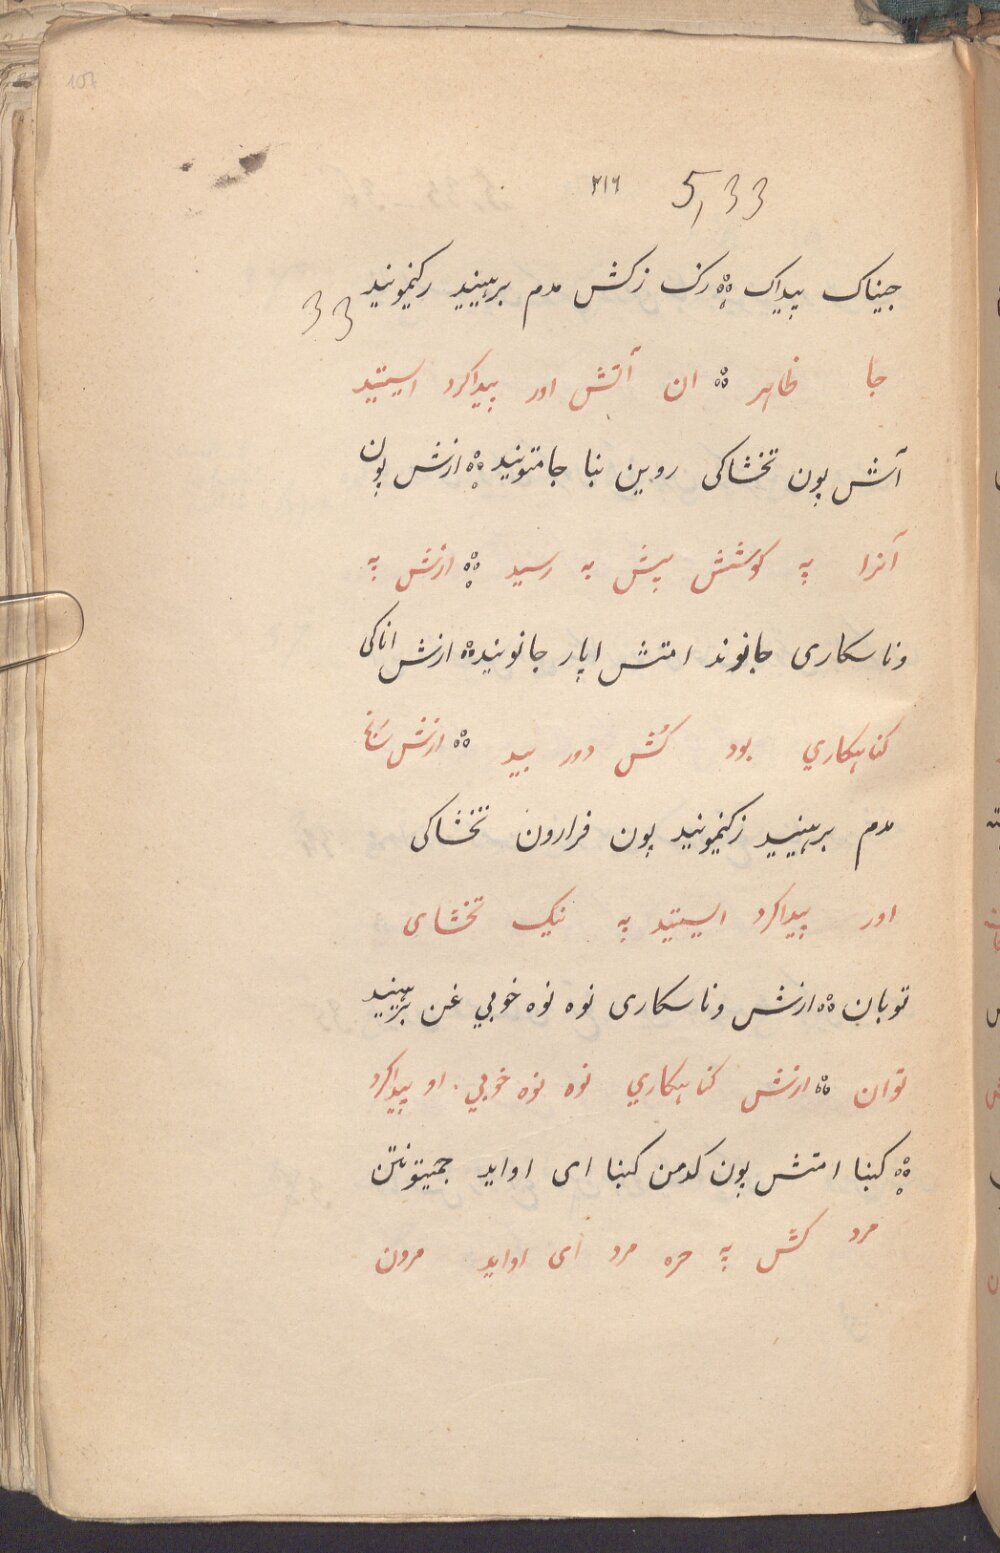 107
۲۱۶ 5,33
جیناک پیداک رک زکش مدم برہیند رکنیمونید 33
جا ظاہر ان آتش اور پیداکرد ایستید
آش پون تخشاکی روین بنا جامتونید ازش پون
آنرا پہ کوشش پیش بہ رسید ازش پہ
وناسکاری جانوند امتش اپار جانونید ازش اناکی
کناہکاري بود کش دور بید ازش
مدم برہینید زکنیمونید پون فرارون تخشاکی
اور پیداکرد ایستید پہ نیک تخشای
توبان ازش وناسکاری نوہ نوہ خوبي غن برہینید
توان ازش کناہکاري نوہ نوہ خوبي او پیداکرد
کبنا امتش پون کدمن کبنا ای اواید جمیتونتن
مرد کش پہ مرہ مرد ای اواید مردن